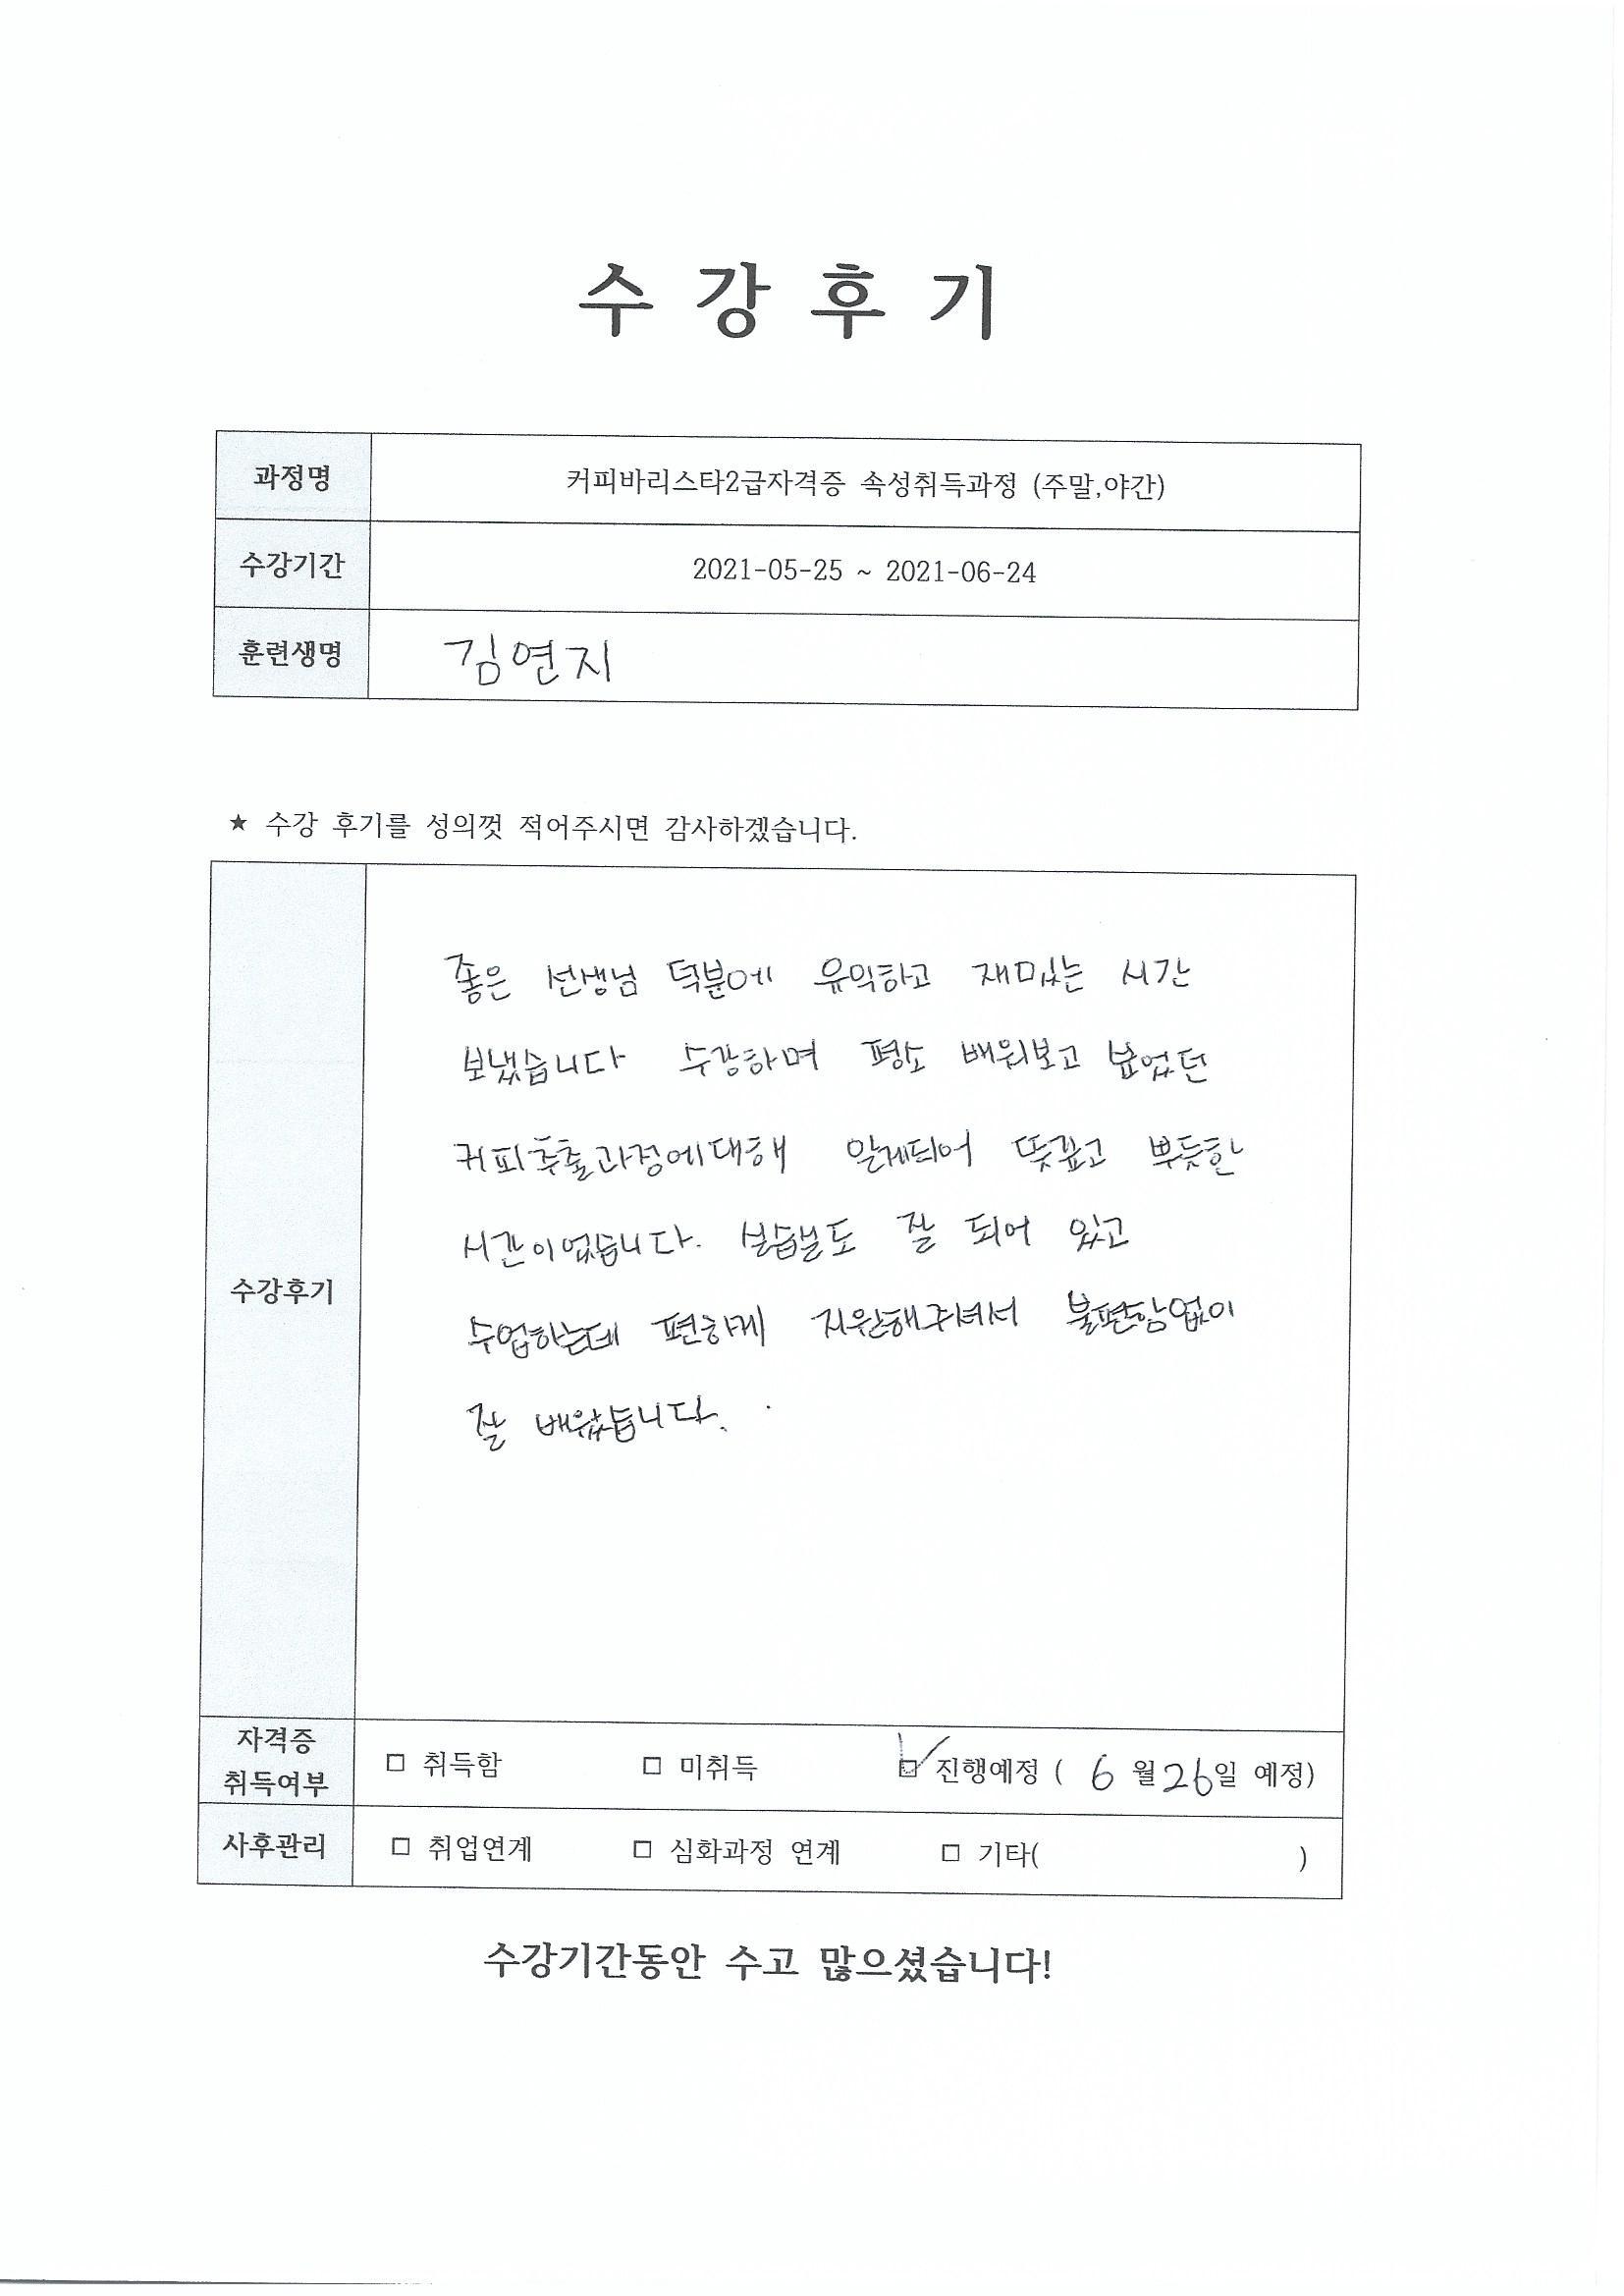 수 강 후 기
과정명 커피바리스타2급자격증 속성취득과정 (주말,야간)
수강기간 2021-05-25 ~ 2021-06-24
훈련생명 김연지
★ 수강 후기를 성의껏 적어주시면 감사하겠습니다.
좋은 선생님 덕분에 유익하고 재미있는 시간
보냈습니다 수강하며 평소 배워보고 싶었던
커피추출과정에대해 알게되어 뜻깊고 뿌듯한
시간이었습니다. 실습실도 잘 되어 있고
수강후기
수업하는데 편하게 지원해주셔서 불편함없이
잘 배웠습니다.
자격증 취득여부 □ 취득함 □ 미취득 ☑ 진행예정 ( 6 월 26일 예정)
사후관리 □ 취업연계 □ 심화과정 연계 □ 기타( )
수강기간동안 수고 많으셨습니다!